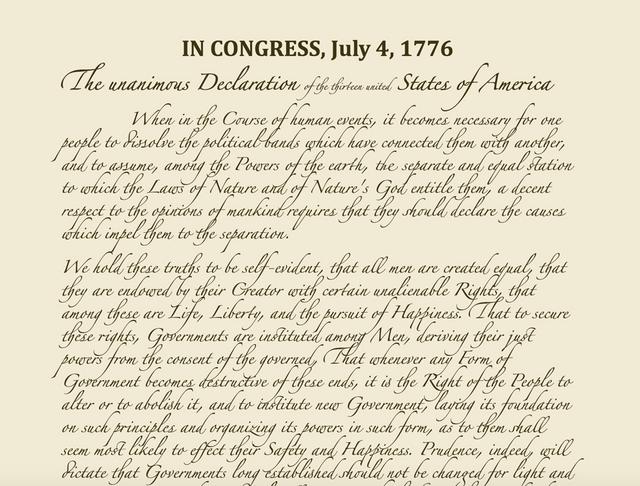 IN CONGRESS, July 4, 1776
The unanimous Declaration of the thirteen united States of America
When in the Course of human events, it becomes necessary for one
people to dissolve the political bands which have connected them with another,
and to assume, among the Powers of the earth, the separate and equal station
to which the Laws of Nature and of Nature's God entitle them, a decent
respect to the opinions of mankind requires that they should declare the causes
which impel them to the separation.
We hold these truths to be self-evident, that all men are created equal, that
they are endowed by their Creator with certain unalienable Rights, that
among these are Life, Liberty, and the pursuit of Happiness. That to secure
these rights, Governments are instituted among Men, deriving their just
powers from the consent of the governed, That whenever any Form of
Government becomes destructive of these ends, it is the Right of the People to
alter or to abolish it, and to institute new Government, laying its foundation
on such principles and organizing its powers in such form, as to them shall
seem most likely to effect their Safety and Happiness. Prudence, indeed, will
dictate that Governments long established should not be changed for light and